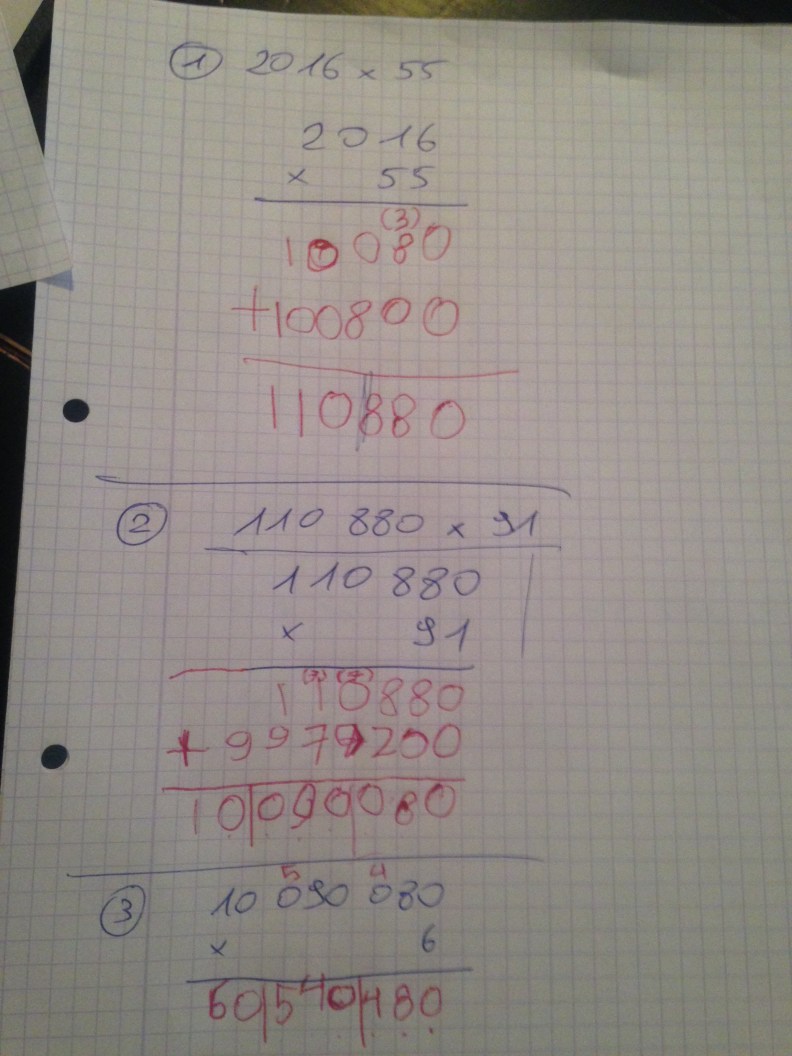 ① 2016 x 55
2016
x 55
(3)
10080
+100800
110880
② 110 880 x 91
110 880
x 91
(7) (7)
110880
+ 9979200
10|090|080
5 4
③ 10 090 080
x 6
60|540|480